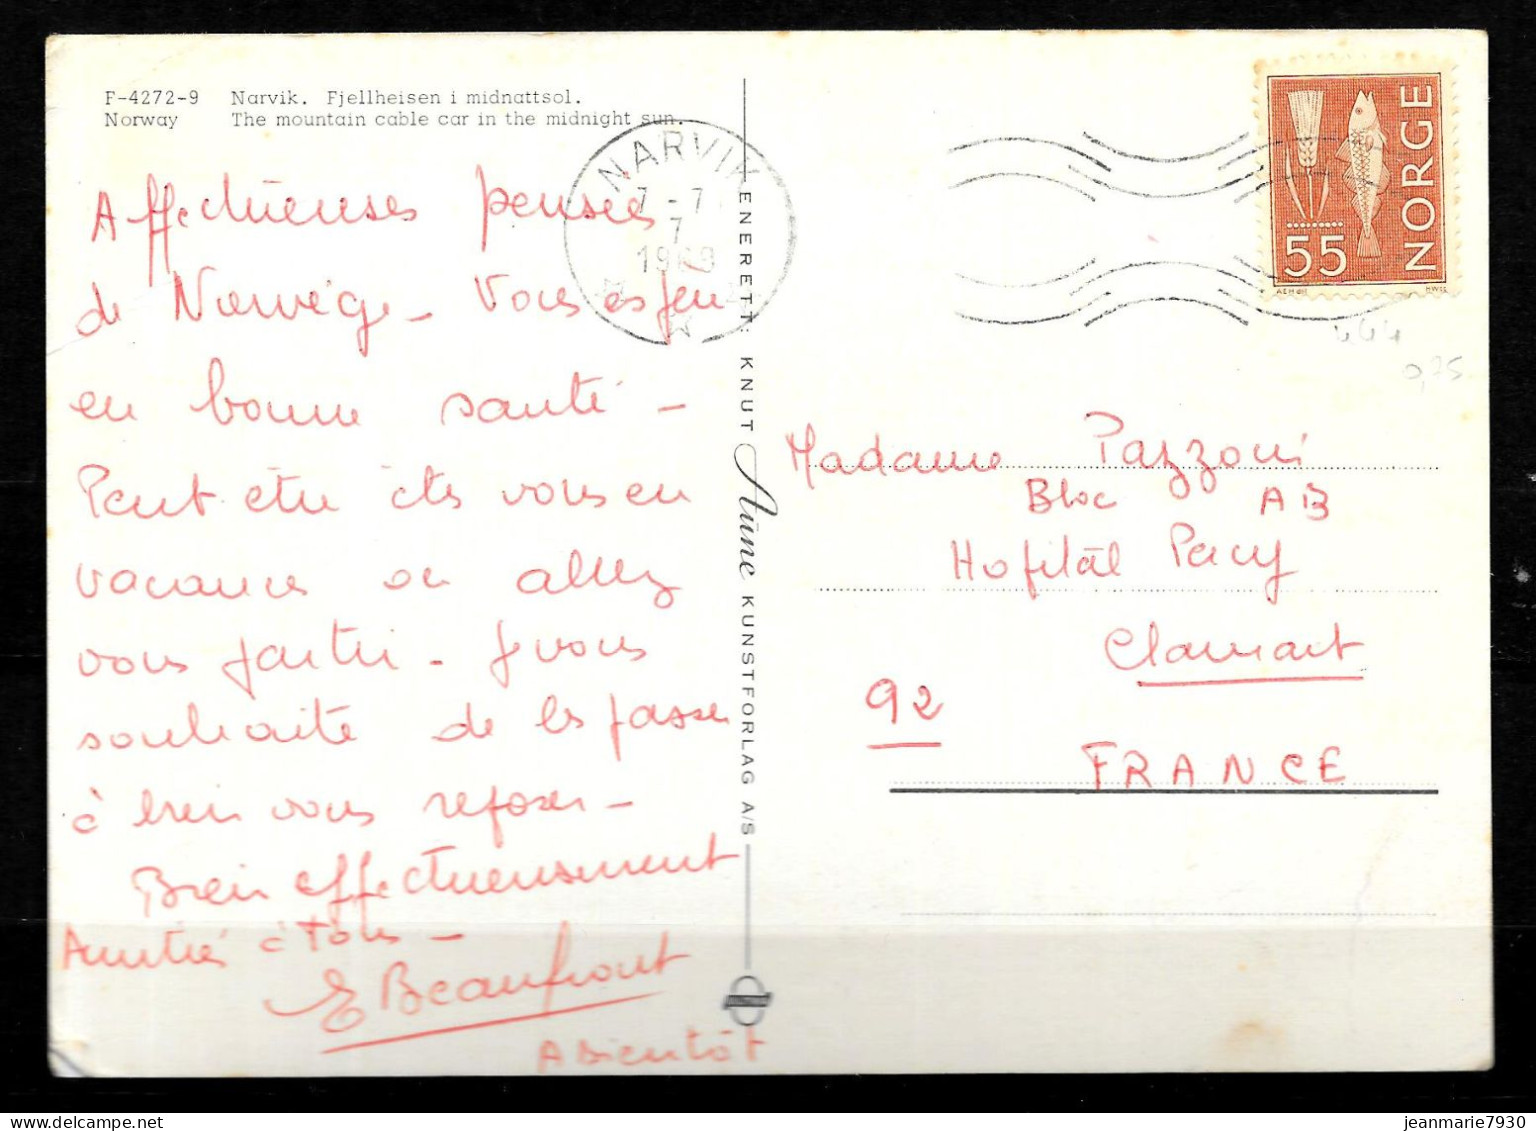 F-4272-9 Narvik. Fjellheisen i midnattsol.
Norway The mountain cable car in the midnight sun.
NARVIK
7-7
7
1969
NORGE
55
ENERETT: KNUT Aune KUNSTFORLAG A/S
Affectueuses pensées
de Norvège - Vous espère
en bonne santé -
Peut être êtes vous en
vacances ou allez
vous partir - Je vous
souhaite de les passer
à bien vous reposer -
Bien affectueusement
Amitié à tous -
E Beaufront
A bientôt
Madame Pazzoni
Bloc AB
Hopital Percy
Clamart
92
FRANCE
444
0,75
jeanmarie7930